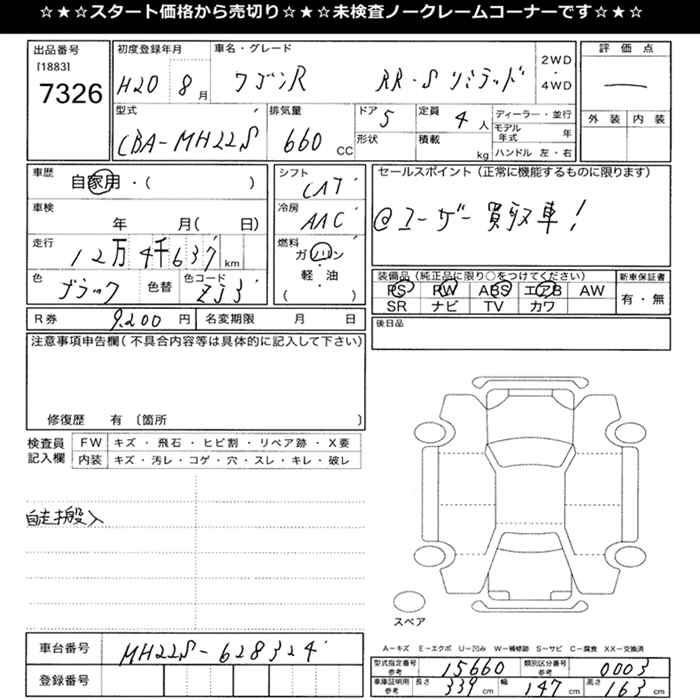 ☆★☆★スタート価格から売切り☆★☆★未検査ノークレームコーナーです☆★☆
出品番号
[1883]
7326
初度登録年月
H20 8月
車名・グレード
ワゴンR RR-Sリミテッド
2WD
・
4WD
型式
CBA-MH22S
排気量
660 CC
ドア 5
形状
定員 4人
積載 kg
ディーラー・並行
モデル年式 年
ハンドル 左・右
評価点
―
外装 内装
車歴
自家用・( )
車検
年 月( 日)
走行
12万4千637km
色
ブラック
色替
色コード
ZJ3
シフト
CAT
冷房
AAC
燃料
ガソリン
・
軽・油
( )
R券 9,200円
名変期限 月 日
セールスポイント(正常に機能するものに限ります)
@ユーザー買取車!
装備品(純正品に限り○をつけてください)
PS PW ABS エアB AW
SR ナビ TV カワ
新車保証書
有・無
後日品
注意事項申告欄(不具合内容等は具体的に記入して下さい)
修復歴 有 〔箇所 〕
検査員
記入欄
FW キズ・飛石・ヒビ割・リペア跡・X要
内装 キズ・汚レ・コゲ・穴・スレ・キレ・破レ
自走搬入
スペア
車台番号 MH22S-628324
登録番号
A-キズ E-エクボ U-凹み W-補修跡 S-サビ C-腐食 XX-交換済
型式指定番号
参考
15660
類別区分番号
参考
0003
車庫証明用
参考
長さ 339cm 幅 147cm 高さ 163cm